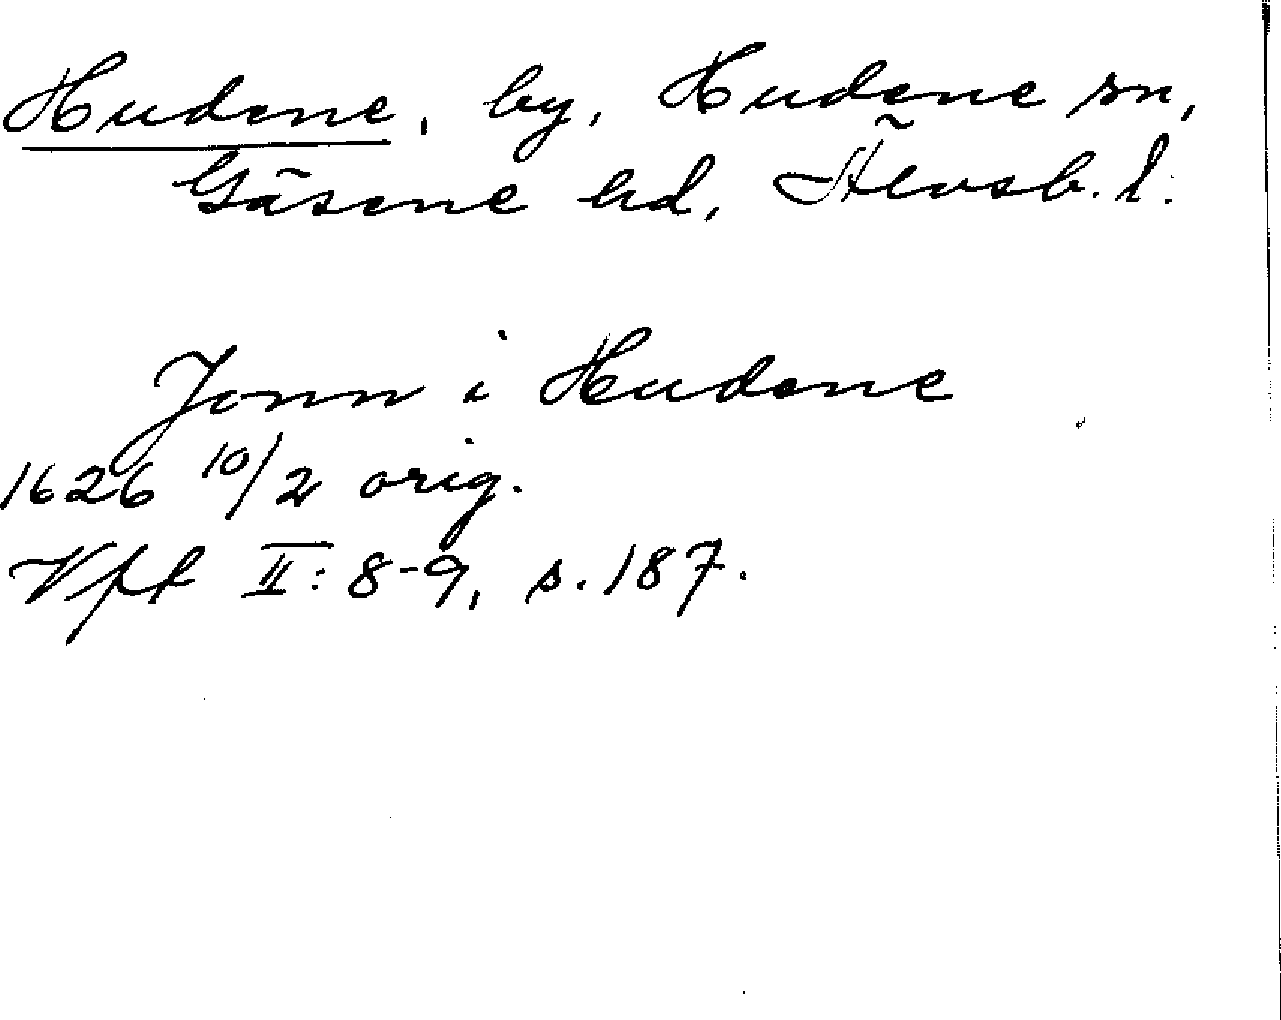 Hudene, by, Hudene sn,
Gäsene hd, Älvsb. l.
Jonn i Hudene
1626 10/2 orig.
Vpt II: 8-9, s. 187.